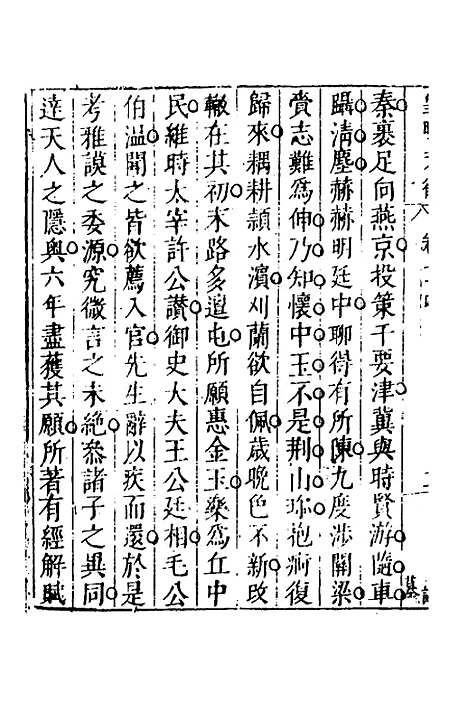 秦裹足向燕京投策干要津冀與時賢游隨車
躡清塵赫赫明廷中聊得有所陳九度涉關梁
賫志難爲伸乃知懷中玉不是荆山珎抱痾復
歸來耦耕潁水濵刈蘭欲自佩歲晚色不新攻
轍在其初末路多邅屯所願惠金玉樂爲丘中
民維時太宰許公讃御史大夫王公廷相毛公
伯温聞之皆欲薦入官先生辭以疾而還於是
考雅謨之委源究微言之未絶叅諸子之異同
達天人之隱與六年盡獲其願所著有經解賦